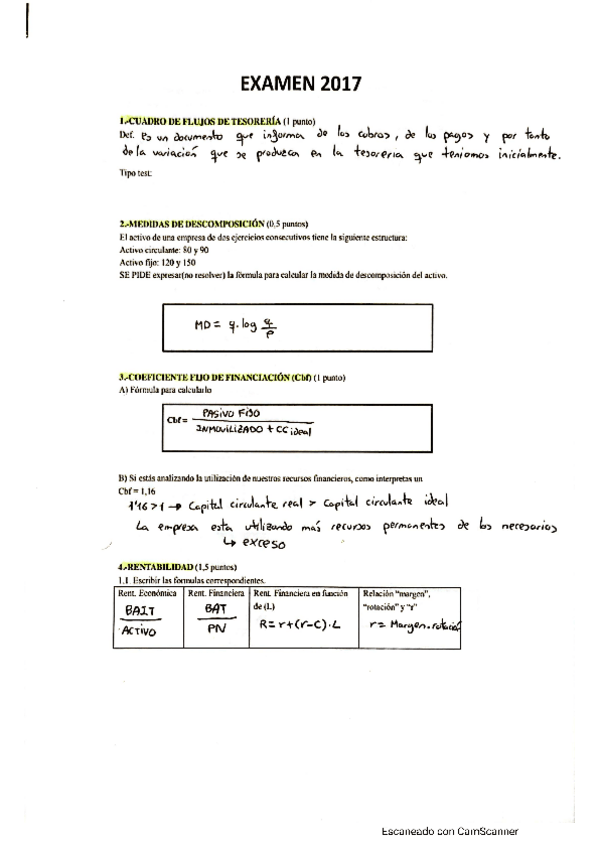 EXAMEN 2017
1.-CUADRO DE FLUJOS DE TESORERÍA (1 punto)
Def. Es un documento que informa de los cobros, de los pagos y por tanto
de la variación que se produzca en la tesorería que teníamos inicialmente.
Tipo test:
2.-MEDIDAS DE DESCOMPOSICIÓN (0,5 puntos)
El activo de una empresa de dos ejercicios consecutivos tiene la siguiente estructura:
Activo circulante: 80 y 90
Activo fijo: 120 y 150
SE PIDE expresar(no resolver) la fórmula para calcular la medida de descomposición del activo.
MD = q. log q/p
3.-COEFICIENTE FIJO DE FINANCIACIÓN (Cbf) (1 punto)
A) Fórmula para calcularlo
Cbf = PASIVO FIJO
INMOVILIZADO + CC ideal
B) Si estás analizando la utilización de nuestros recursos financieros, como interpretas un
Cbf = 1,16
1'16 > 1 → Capital circulante real > Capital circulante ideal
La empresa esta utilizando más recursos permanentes de los necesarios
↳ exceso
4.-RENTABILIDAD (1,5 puntos)
1.1. Escribir las formulas correspondientes.
Rent. Económica Rent. Financiera Rent. Financiera en función de (L) Relación "margen", "rotación" y "r"
BAIT/ACTIVO BAT/PN R = r + (r - C) · L r = Margen.rotación
Escaneado con CamScanner